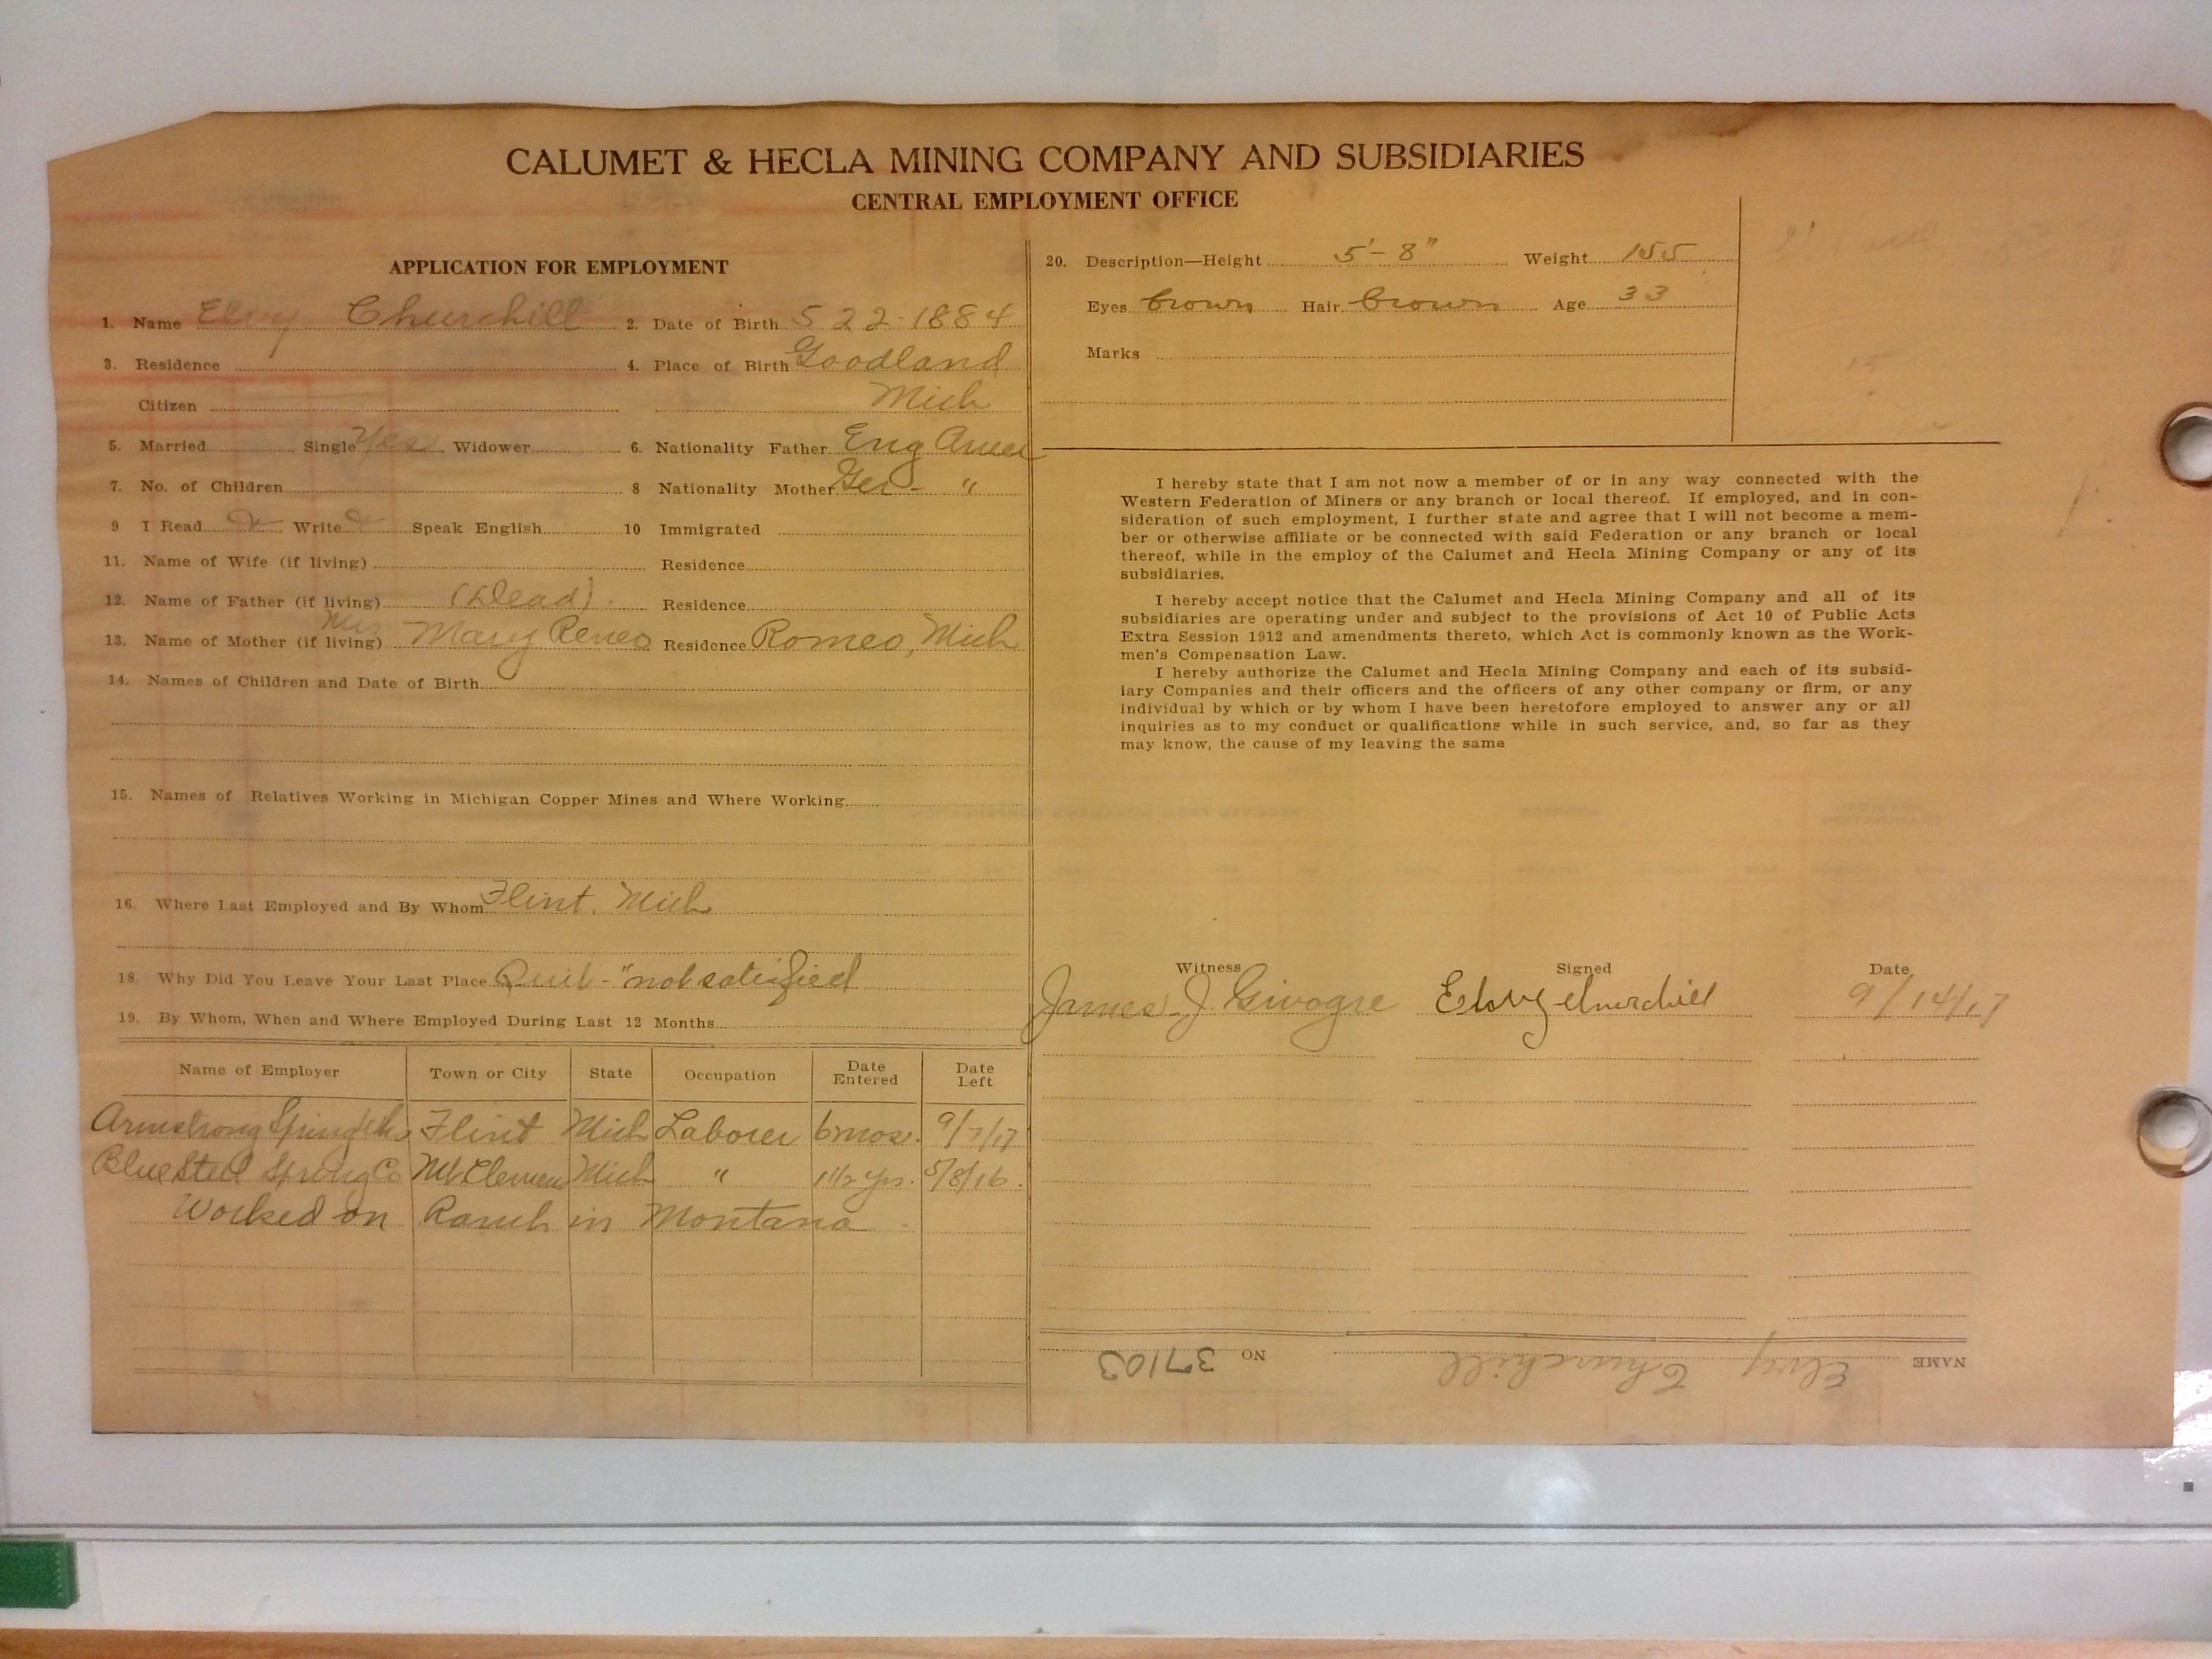 CALUMET & HECLA MINING COMPANY AND SUBSIDIARIES
CENTRAL EMPLOYMENT OFFICE
APPLICATION FOR EMPLOYMENT
1. Name Elvy Churchill 2. Date of Birth 5 22-1884
3. Residence 4. Place of Birth Goodland
Citizen Mich
5. Married Single Yes Widower 6. Nationality Father Eng Amer
7. No. of Children 8 Nationality Mother Ger - "
9 I Read Write Speak English 10 Immigrated
11. Name of Wife (if living) Residence
12. Name of Father (if living) (Dead) Residence
13. Name of Mother (if living) Mrs Mary Reneo Residence Romeo, Mich
14. Names of Children and Date of Birth
15. Names of Relatives Working in Michigan Copper Mines and Where Working
16. Where Last Employed and By Whom Flint, Mich
18. Why Did You Leave Your Last Place Quit - "not satisfied
19. By Whom, When and Where Employed During Last 12 Months
Name of Employer Town or City State Occupation Date Entered Date Left
Armstrong Spring Flint Mich Laborer 6 mos. 9/7/17
Blue Steel Spring Co Mt Clemens Mich " 1 1/2 yrs. 5/8/16
Worked on Ranch in Montana
20. Description—Height 5'-8" Weight 155
Eyes brown Hair brown Age 33
Marks
I hereby state that I am not now a member of or in any way connected with the
Western Federation of Miners or any branch or local thereof. If employed, and in con-
sideration of such employment, I further state and agree that I will not become a mem-
ber or otherwise affiliate or be connected with said Federation or any branch or local
thereof, while in the employ of the Calumet and Hecla Mining Company or any of its
subsidiaries.
I hereby accept notice that the Calumet and Hecla Mining Company and all of its
subsidiaries are operating under and subject to the provisions of Act 10 of Public Acts
Extra Session 1912 and amendments thereto, which Act is commonly known as the Work-
men's Compensation Law.
I hereby authorize the Calumet and Hecla Mining Company and each of its subsid-
iary Companies and their officers and the officers of any other company or firm, or any
individual by which or by whom I have been heretofore employed to answer any or all
inquiries as to my conduct or qualifications while in such service, and, so far as they
may know, the cause of my leaving the same
Witness Signed Date
James J. Givogre Elvy Churchill 9/14/17
NAME Elvy Churchill NO 37103